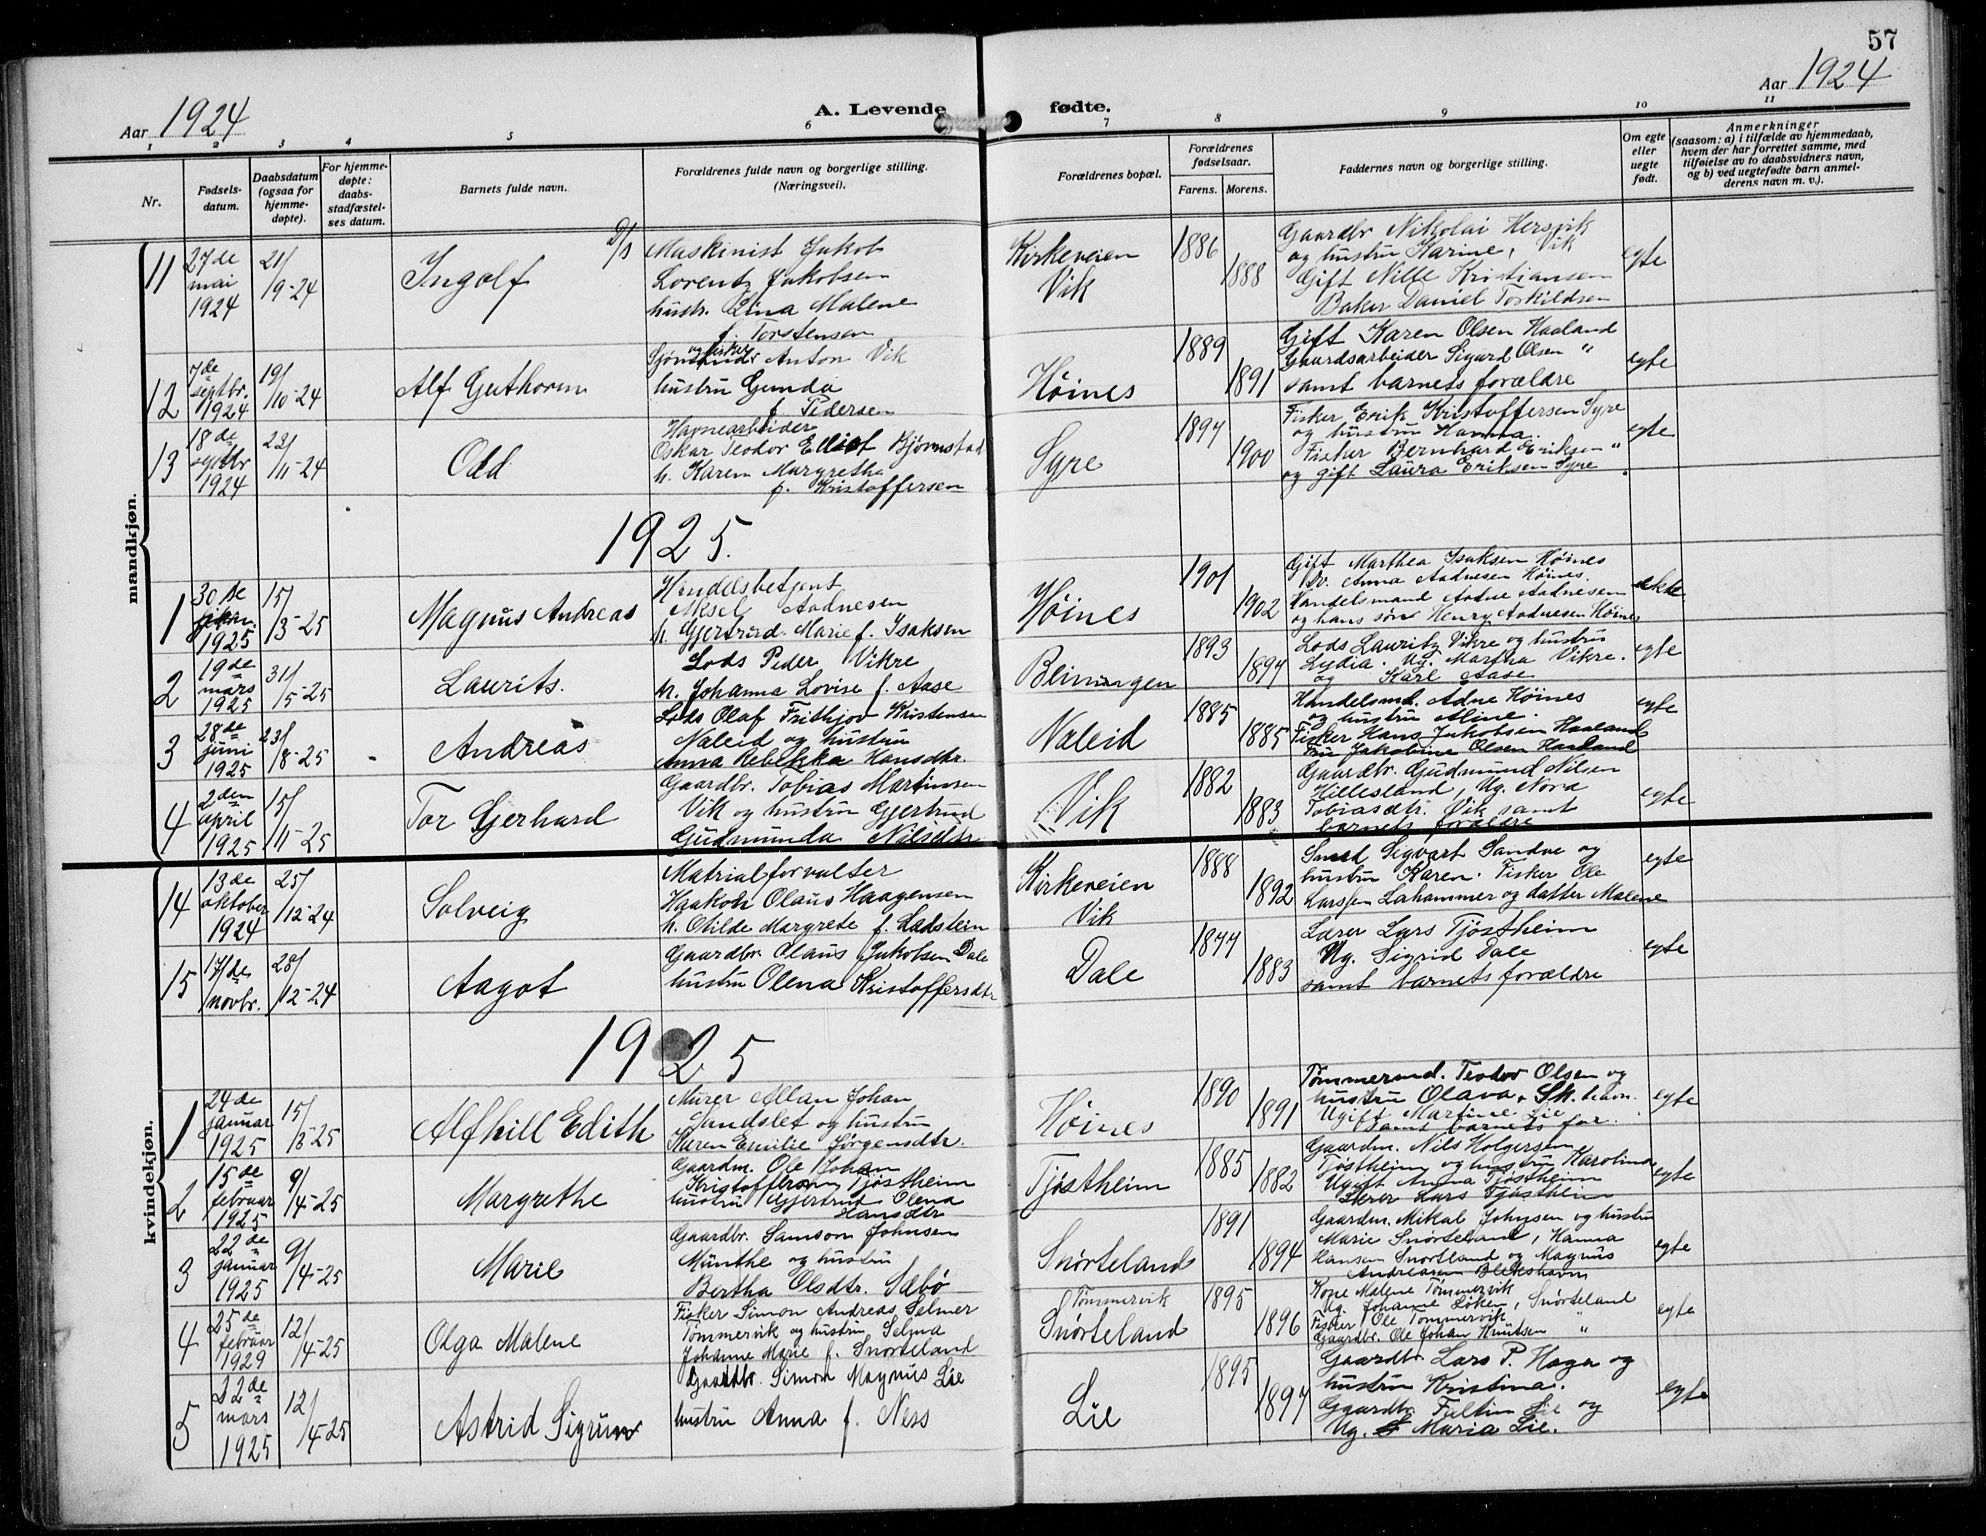 57
Aar 1924
A. Levende fødte.
Aar 1924
1 2 3 4 5 6 7 8 9 10 11
Nr.
Fødsels-
datum.
Daabsdatum
(ogsaa for
hjemme-
døpte).
For hjemme-
døpte:
daabs-
stadfæstel-
ses datum.
Barnets fulde navn.
Forældrenes fulde navn og borgerlige stilling.
(Næringsvei).
Forældrenes bopæl.
Forældrenes
fødselsaar.
Farens. Morens.
Faddernes navn og borgerlige stilling.
Om egte
eller
uegte
født.
Anmerkninger
(saasom: a) i tilfælde av hjemmedaab,
hvem der har forrettet samme, med
tilføielse av to daabsvidners navn,
og b) ved uegtefødte barn anmel-
derens navn m. v.).
mandkjøn.
11
27de
mai
1924
21/
9-24
Ingolf
D/s
Maskinist Jakob
Lorentz Jakobsen
hustr. Lina Malene
f. Torstensen
Kirkeveien
Vik
1886
1888
Gaardbr Nikolai Hersvik
og hustru Karine, Vik
Gift Nille Kristiansen
Baker Daniel Torkildsen
egte
12
7de
septbr.
1924
19/
10-24
Alf Guthorm
og fisker
Anton Vik
hustru Gunda
f. Pedersen
Høines
1889
1891
Gift Karen Olsen Haaland
Gaardsarbeider Sigurd Olsen "
samt barnets forældre
egte
13
18de
septbr
1924
23/
11-24
Odd
Havnearbeider
Oskar Teodor Elliot Bjørnstad
h. Karen Margretha
f. Kristoffersen
Syre
1897
1900
Fisker Erik Kristoffersen Syre
og hustru Hanna.
Fisker Bernhard Eriksen "
og gift Laura Eriksen Syre
egte
1925.
1
30de
1925
15/
3-25
Magnus Andreas
Handelsbetjent
Aksel Aadnesen
h. Gjertrud Marie f. Isaksen
Høines
1901
1902
Gift Marthea Isaksen Høines
Anna Aadnesen Høines.
Handelsmand Aadne Aadnesen
og hans søn Henry Aadnesen Høines
ekte
2
19de
mars
1925
31/
5-25
Laurits.
Lods Peder Vikre
h. Johanna Lovise f. Aase
1893
1897
Lods Lauritz Vikre og hustru
Lydia. Ug. Martha Vikre.
og Karl Aase
egte
3
28de
juni
1925
23/
8-25
Andreas
Lods Olaf Frithjov Kristensen
Naleid og hustru
Anna Rebekka Hansdtr.
Naleid
1885
1885
Handelsmd. Adne Høines
og hustru Aline.
Fisker Hans Jakobsen Haaland
Fru Jakobine Olsen Haaland
egte
4
2den
april
1925
15/
11-25
Tor Gjerhard
Gaardbr. Tobias Martinsen
Vik og hustru Gjertrud
Gudmunda Nilsdtr
Vik
1882
1883
Gaardbr. Gudmund Nilsen
Hillesland, Ug. Nora
Tobiasdtr. Vik samt
barnets forældre
egte
kvindekjøn.
14
13de
oktober
1924
25/
12-24
Solveig
Matrialforvalter
Haakon Olaus Haagensen
h. Otilde Margrete f. Ladstein
Kirkeveien
Vik
1888
1892
Smed Sigvart Sandve og
hustru Karen. Fisker Ole
Larssen Lahammer og datter Malene
egte
15
17de
novbr.
28/
12-24
Aagot
Gaardbr. Olaus Jakobsen Dale
hustru Olena Kristoffersdtr
Dale
1877
1883
Lærer Lars Tjøstheim
Ug. Sigrid Dale
samt barnets forældre
egte
1925
1
24de
januar
1925
15/
3-25
Alfhill Edith
Murer Allan Johan
Sandslet og hustru
Karen Emilie Jørgensdtr.
Høines
1890
1891
Tømmermd. Teodor Olsen og
hustru Olava, Sk.
Ugift Martine Lie
samt barnets for.
egte
2
15de
februar
1925
9/
4-25
Margrethe
Gaardm. Ole Johan
Kristoffersen Tjøstheim
hustru Gjertrud Olena
Hansdtr
Tjøstheim
1885
1882
Gaardm. Nils Holgersen
Tjøstheim og hustru Karolina
Ugift Anna Tjøstheim
Lærer Lars Tjøstheim
egte
3
22de
januar
1925
9/
4-25
Marie
Gaardbr. Samson Johnsen
Münthe og hustru
Bertha Olsdtr. Sæbø
Snørteland
1891
1894
Gaardm. Mikal Johnsen og hustru
Marie Snørteland, Hanna
Hansen Snortland og Magnus
Andreasen Blekshavn
egte
4
25de
februar
1929
12/
4-25
Olga Malene
Fisker Simon Andreas Selmer
Tømmervik og hustru Selma
Johanne Marie f. Snørteland
Tømmervik
Snørteland
1895
1896
Kone Malene Tømmervik
Ug. Johanne Løken, Snørteland
Fisker Ole Tømmervik
Gaardbr. Ole Johan Knutsen "
egte
5
22de
mars
1925
12/
4-25
Astrid Sigrun
Gaardbr. Simon Magnus Lie
hustru Anna f. Ness
Lie
1895
1897
Gaardbr. Lars P. Haga og
hustru Kristina.
Gaardbr. Fultin Lie og
Ug. Maria Lie.
egte